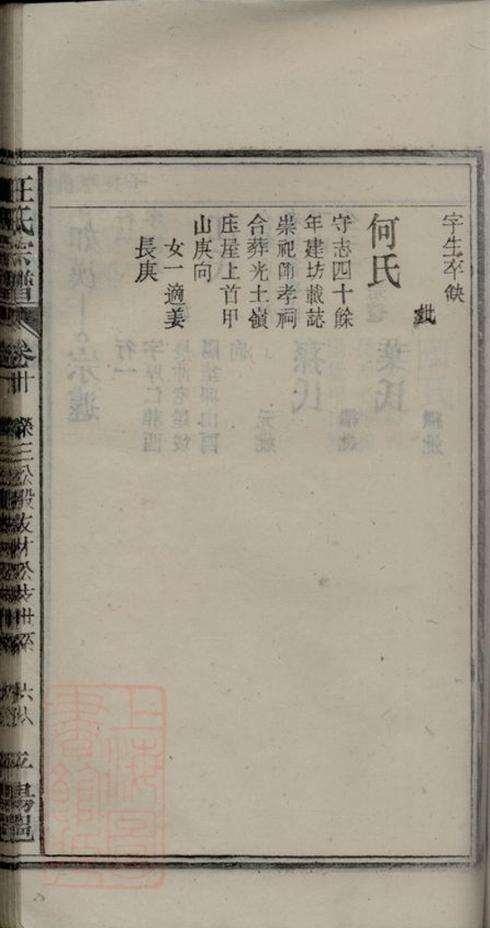 字生卒缺
妣
何氏
守志四十餘
年建坊載誌
崇祀節孝祠
合葬光土嶺
庒屋上首甲
山庚向
女一適姜
長庚
汪氏宗譜
卷廿
上海圖書館藏